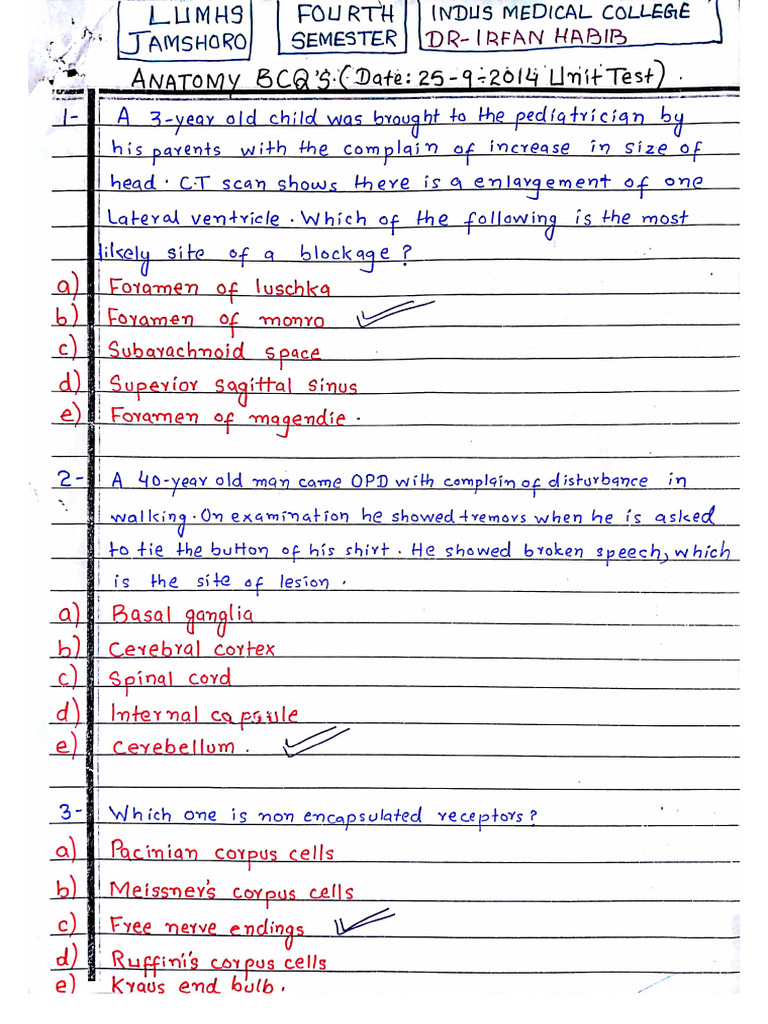 LUMHS
JAMSHORO
FOURTH
SEMESTER
INDUS MEDICAL COLLEGE
DR-IRFAN HABIB
ANATOMY BCQ'S. (Date: 25-9-2014 Unit Test).
1- A 3-year old child was brought to the pediatrician by
his parents with the complain of increase in size of
head. C.T scan shows there is a enlargement of one
Lateral ventricle. Which of the following is the most
likely site of a blockage?
a) Foramen of luschka
b) Foramen of monro
c) Subarachnoid space
d) Superior sagittal sinus
e) Foramen of magendie.
2- A 40-year old man came OPD with complain of disturbance in
walking. On examination he showed tremors when he is asked
to tie the button of his shirt. He showed broken speech, which
is the site of lesion.
a) Basal ganglia
b) Cerebral cortex
c) Spinal cord
d) Internal capsule
e) Cerebellum.
3- Which one is non encapsulated receptors?
a) Pacinian corpus cells
b) Meissner's corpus cells
c) Free nerve endings
d) Ruffini's corpus cells
e) Kraus end bulb.